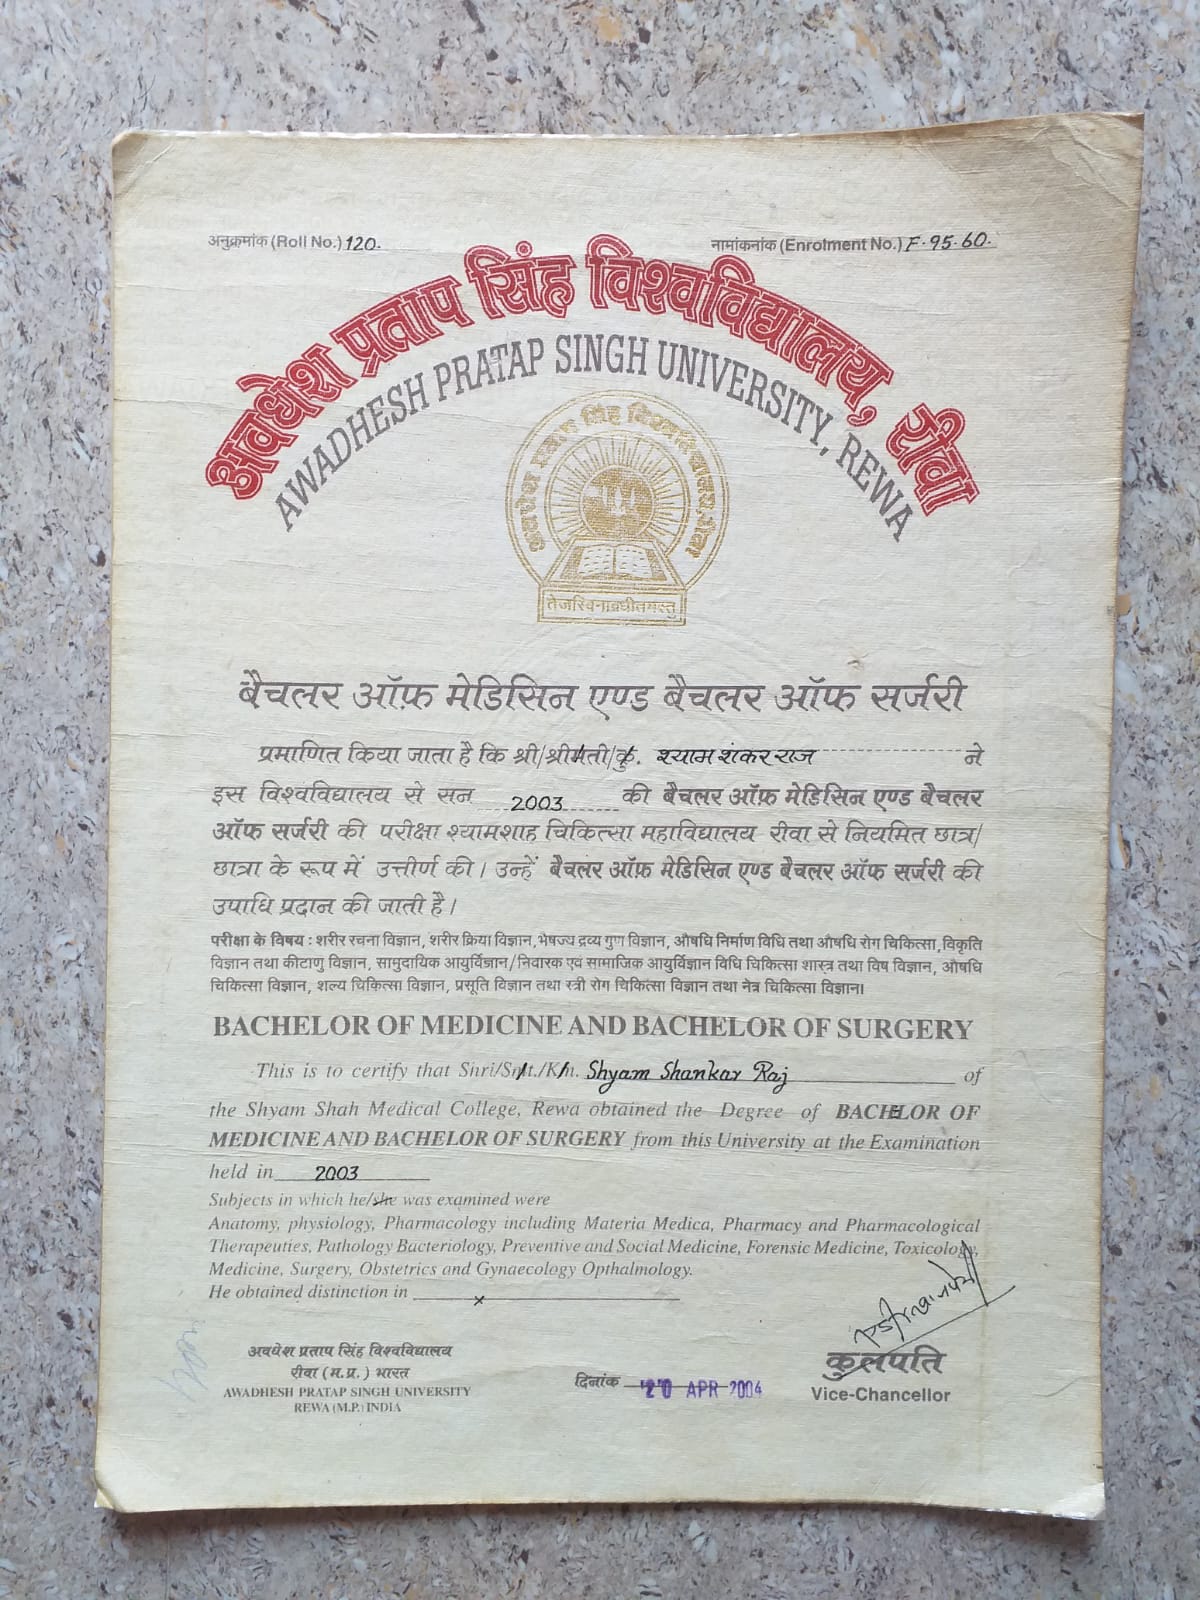 अनुक्रमांक (Roll No.) 120.
नामांकनांक (Enrolment No.) F-95-60.
अवधेश प्रताप सिंह विश्वविद्यालय, रीवा
AWADHESH PRATAP SINGH UNIVERSITY, REWA
तेजस्विनावधीतमस्तु
बैचलर ऑफ़ मेडिसिन एण्ड बैचलर ऑफ सर्जरी
प्रमाणित किया जाता है कि श्री/श्रीमती/कु. श्याम शंकर राज ने
इस विश्वविद्यालय से सन 2003 की बैचलर ऑफ़ मेडिसिन एण्ड बैचलर
ऑफ सर्जरी की परीक्षा श्यामशाह चिकित्सा महाविद्यालय रीवा से नियमित छात्र/
छात्रा के रूप में उत्तीर्ण की। उन्हें बैचलर ऑफ़ मेडिसिन एण्ड बैचलर ऑफ सर्जरी की
उपाधि प्रदान की जाती है।
परीक्षा के विषय : शरीर रचना विज्ञान, शरीर क्रिया विज्ञान, भेषज्य द्रव्य गुण विज्ञान, औषधि निर्माण विधि तथा औषधि रोग चिकित्सा, विकृति
विज्ञान तथा कीटाणु विज्ञान, सामुदायिक आयुर्विज्ञान/निवारक एवं सामाजिक आयुर्विज्ञान विधि चिकित्सा शास्त्र तथा विष विज्ञान, औषधि
चिकित्सा विज्ञान, शल्य चिकित्सा विज्ञान, प्रसूति विज्ञान तथा स्त्री रोग चिकित्सा विज्ञान तथा नेत्र चिकित्सा विज्ञान।
BACHELOR OF MEDICINE AND BACHELOR OF SURGERY
This is to certify that Shri/Smt./Km. Shyam Shankar Raj of
the Shyam Shah Medical College, Rewa obtained the Degree of BACHELOR OF
MEDICINE AND BACHELOR OF SURGERY from this University at the Examination
held in 2003
Subjects in which he/she was examined were
Anatomy, physiology, Pharmacology including Materia Medica, Pharmacy and Pharmacological
Therapeuties, Pathology Bacteriology, Preventive and Social Medicine, Forensic Medicine, Toxicology,
Medicine, Surgery, Obstetrics and Gynaecology Opthalmology.
He obtained distinction in x
अवधेश प्रताप सिंह विश्वविद्यालय
रीवा (म.प्र.) भारत
AWADHESH PRATAP SINGH UNIVERSITY
REWA (M.P.) INDIA
दिनांक 20 APR 2004
कुलपति
Vice-Chancellor